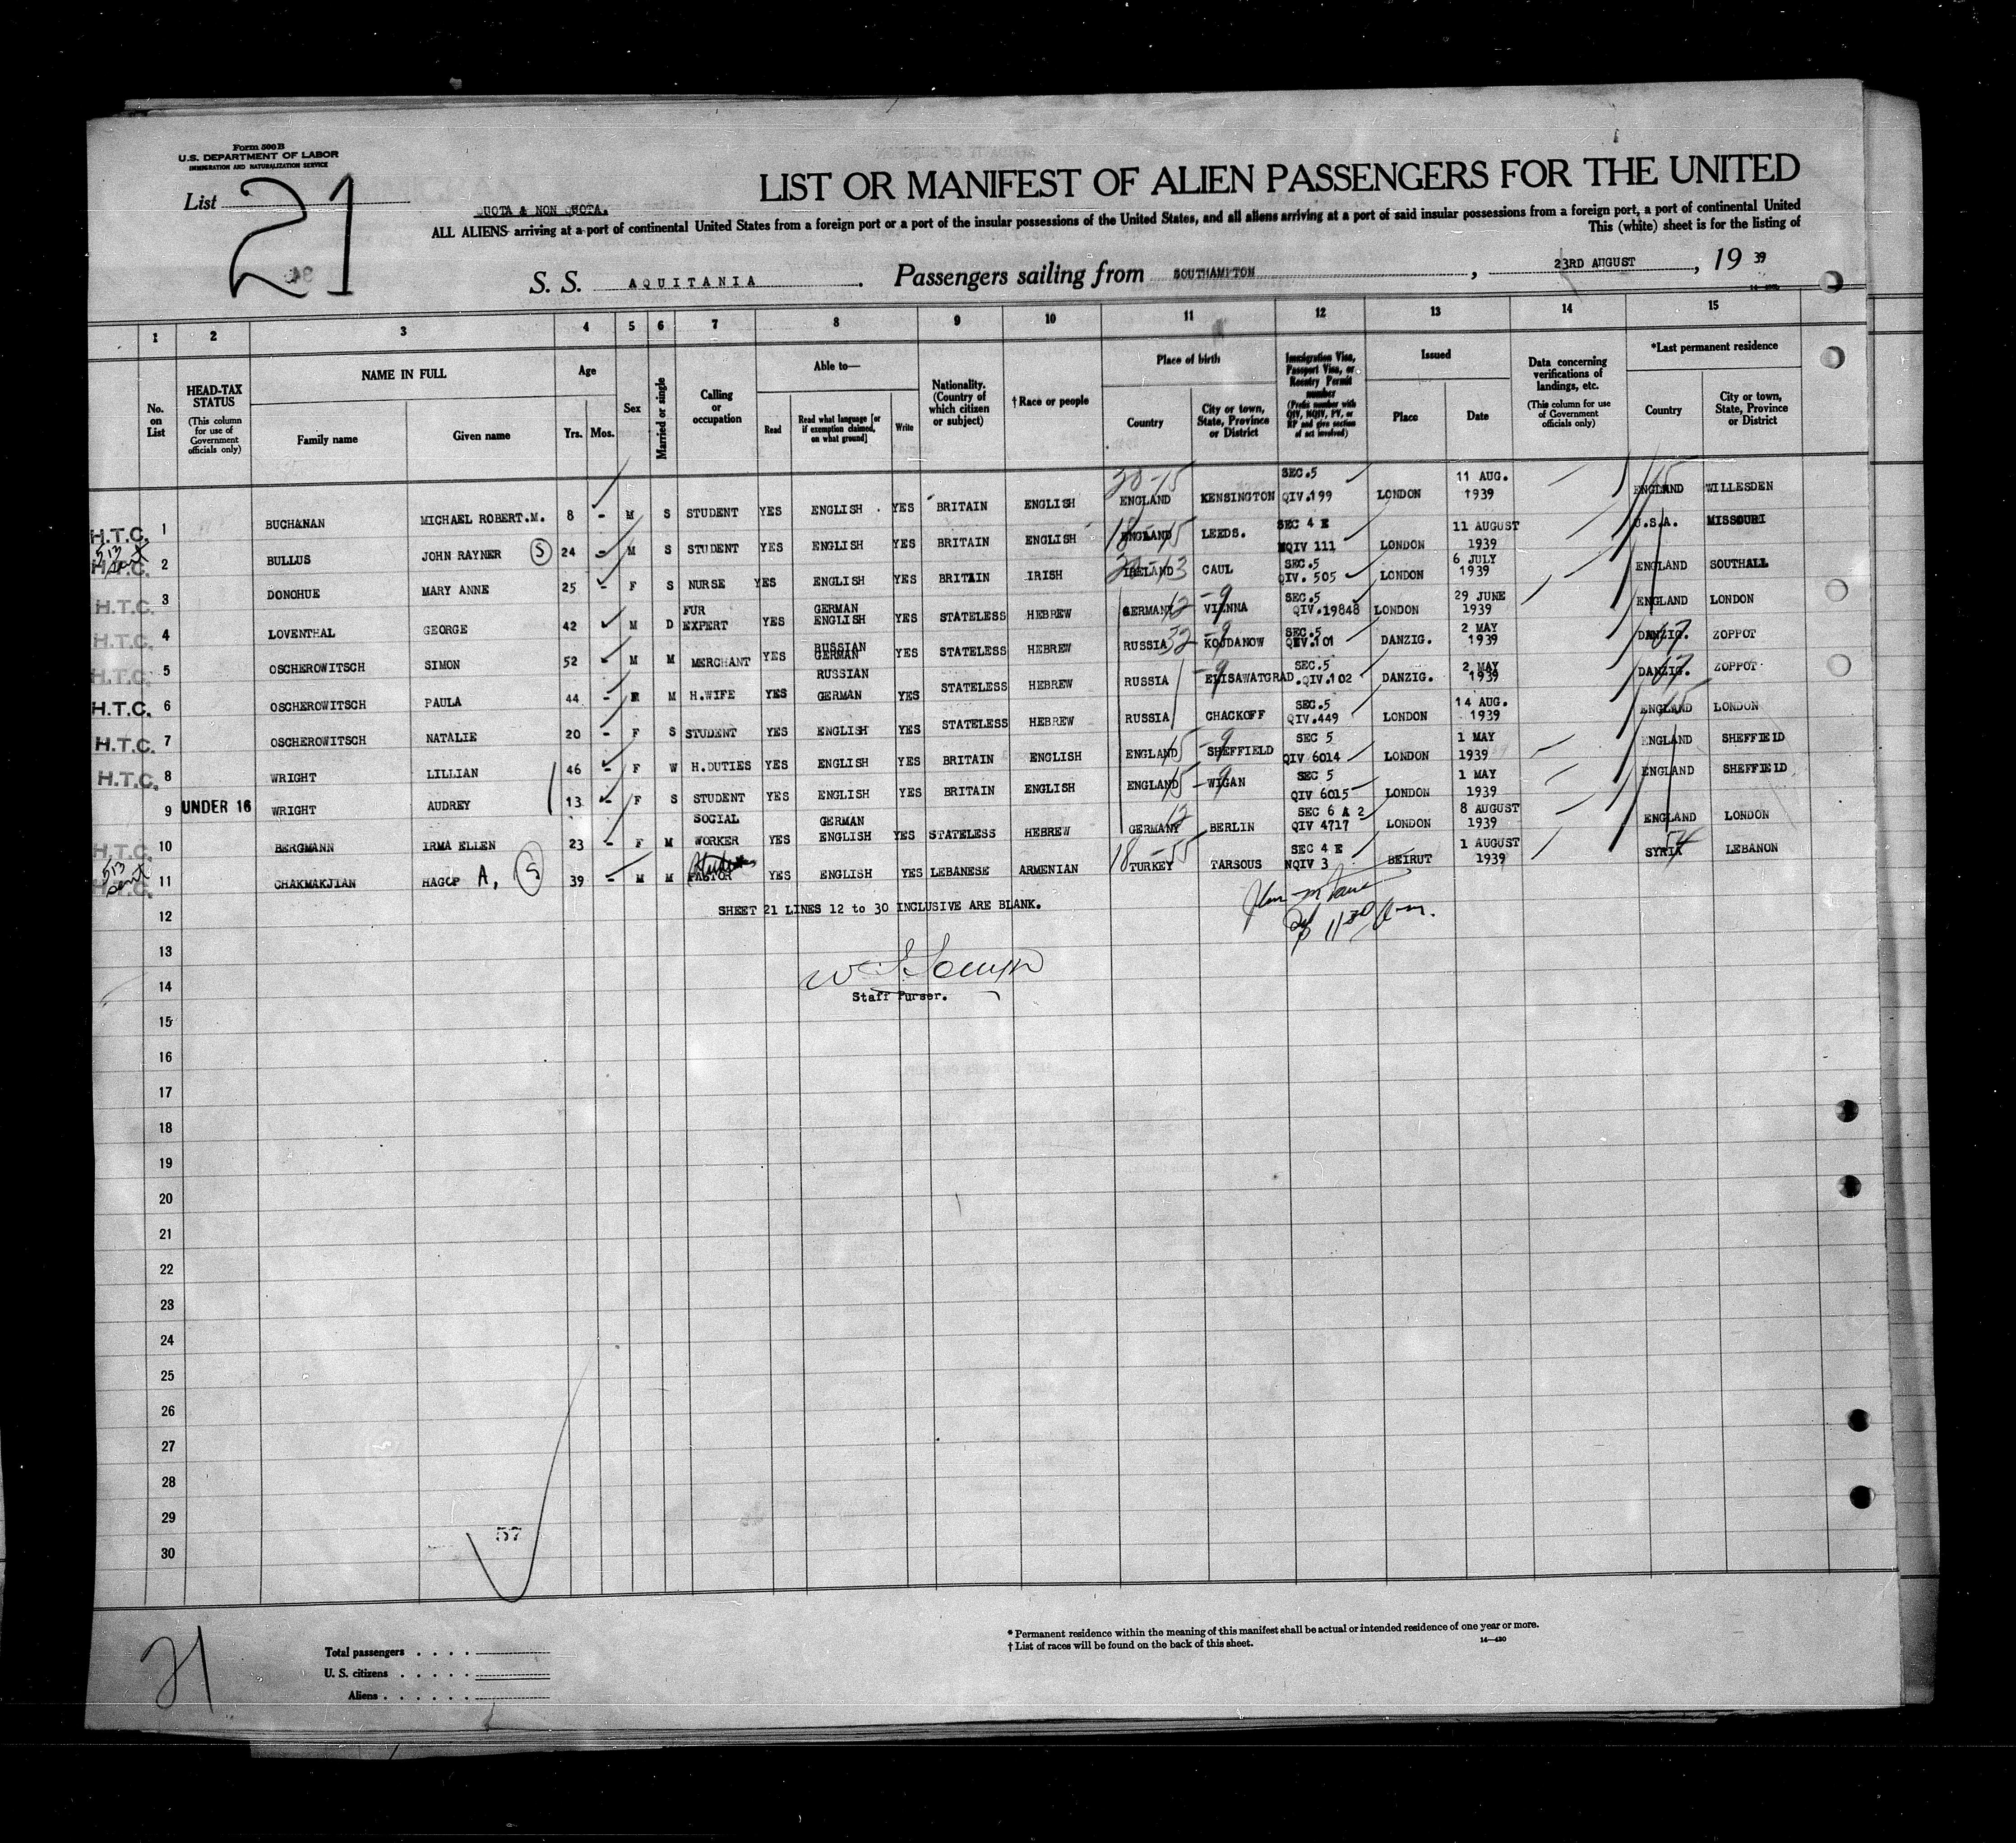 Form 500B
U.S. DEPARTMENT OF LABOR
IMMIGRATION AND NATURALIZATION SERVICE
List 21
LIST OR MANIFEST OF ALIEN PASSENGERS FOR THE UNITED
UOTA & NON UOTA.
ALL ALIENS arriving at a port of continental United States from a foreign port or a port of the insular possessions of the United States, and all aliens arriving at a port of said insular possessions from a foreign port, a port of continental United
This (white) sheet is for the listing of
S. S. AQUITANIA. Passengers sailing from SOUTHAMPTON, 23RD AUGUST, 19 39
1 2 3 4 5 6 7 8 9 10 11 12 13 14 15
No. on List
HEAD-TAX STATUS (This column for use of Government officials only)
NAME IN FULL
Family name
Given name
Age
Yrs. Mos.
Sex
Married or single
Calling or occupation
Able to—
Read
Read what language [or if exemption claimed, on what ground]
Write
Nationality. (Country of which citizen or subject)
†Race or people
Place of birth
Country
City or town, State, Province or District
Immigration Visa, Passport Visa, or Reentry Permit number (Prefix number with QIV, NQIV, PV, or RP and give section of act involved)
Issued
Place
Date
Data concerning verifications of landings, etc. (This column for use of Government officials only)
*Last permanent residence
Country
City or town, State, Province or District
H.T.C. 1 BUCHANAN MICHAEL ROBERT.M. 8 - M S STUDENT YES ENGLISH YES BRITAIN ENGLISH ENGLAND KENSINGTON SEC.5 QIV.199 LONDON 11 AUG. 1939 ENGLAND WILLESDEN
H.T.C. 2 BULLUS JOHN RAYNER S 24 - M S STUDENT YES ENGLISH YES BRITAIN ENGLISH ENGLAND LEEDS. SEC 4 E NQIV 111 LONDON 11 AUGUST 1939 U.S.A. MISSOURI
H.T.C. 3 DONOHUE MARY ANNE 25 - F S NURSE YES ENGLISH YES BRITAIN IRISH IRELAND CAUL SEC.5 QIV. 505 LONDON 6 JULY 1939 ENGLAND SOUTHALL
H.T.C. 4 LOVENTHAL GEORGE 42 M D FUR EXPERT YES GERMAN ENGLISH YES STATELESS HEBREW GERMANY VIENNA SEC.5 QIV.19848 LONDON 29 JUNE 1939 ENGLAND LONDON
H.T.C. 5 OSCHEROWITSCH SIMON 52 - M M MERCHANT YES RUSSIAN GERMAN YES STATELESS HEBREW RUSSIA KOJDANOW SEC.5 QIV.101 DANZIG. 2 MAY 1939 DANZIG. ZOPPOT
H.T.C. 6 OSCHEROWITSCH PAULA 44 - F M H.WIFE YES RUSSIAN GERMAN YES STATELESS HEBREW RUSSIA ELISAWATGRAD SEC.5 .QIV.102 DANZIG. 2 MAY 1939 DANZIG. ZOPPOT
H.T.C. 7 OSCHEROWITSCH NATALIE 20 - F S STUDENT YES ENGLISH YES STATELESS HEBREW RUSSIA CHACKOFF SEC.5 QIV.449 LONDON 14 AUG. 1939 ENGLAND LONDON
H.T.C. 8 WRIGHT LILLIAN 46 - F W H.DUTIES YES ENGLISH YES BRITAIN ENGLISH ENGLAND SHEFFIELD SEC 5 QIV 6014 LONDON 1 MAY 1939 ENGLAND SHEFFIELD
9 UNDER 16 WRIGHT AUDREY 13 - F S STUDENT YES ENGLISH YES BRITAIN ENGLISH ENGLAND WIGAN SEC 5 QIV 6015 LONDON 1 MAY 1939 ENGLAND SHEFFIELD
H.T.C. 10 BERGMANN IRMA ELLEN 23 - F M SOCIAL WORKER YES GERMAN ENGLISH YES STATELESS HEBREW GERMANY BERLIN SEC 6 A 2 QIV 4717 LONDON 8 AUGUST 1939 ENGLAND LONDON
H.T.C. 11 CHAKMAKJIAN HAGOP A, S 39 - M M PASTOR YES ENGLISH YES LEBANESE ARMENIAN TURKEY TARSOUS SEC 4 E NQIV 3 BEIRUT 1 AUGUST 1939 SYRIA LEBANON
12 SHEET 21 LINES 12 to 30 INCLUSIVE ARE BLANK.
13
14
Staff Purser.
15
16
17
18
19
20
21
22
23
24
25
26
27
28
29
57
30
21
Total passengers
U. S. citizens
Aliens
* Permanent residence within the meaning of this manifest shall be actual or intended residence of one year or more.
† List of races will be found on the back of this sheet.
14—430